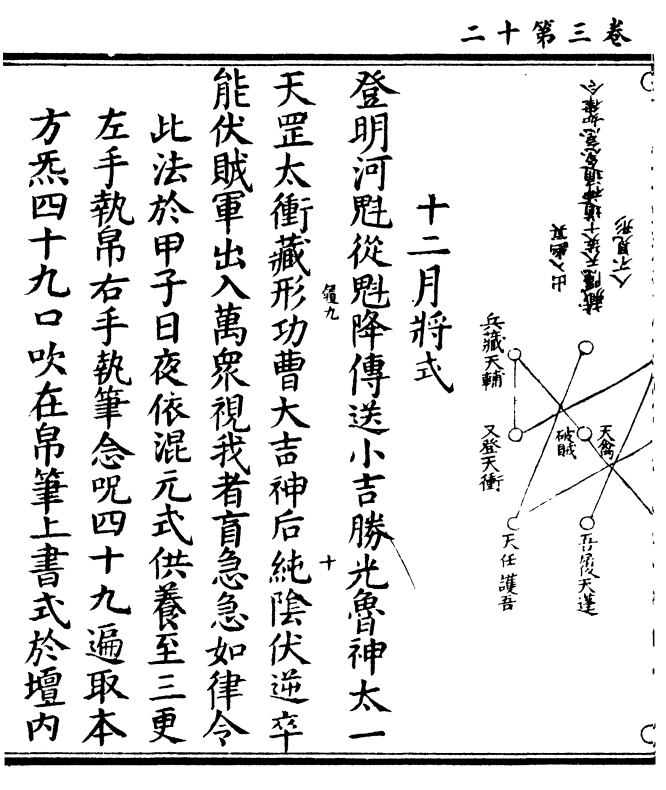 卷三第十二
人不見形
天禽
破賊
吾後天蓬
兵藏天輔
又登天衝
天任護吾
十二月將式
登明河魁從魁降傳送小吉勝光魯神太一
十
天罡太衝藏形功曹大吉神后純陰伏逆卒
能伏賊軍出入萬眾視我者盲急急如律令
此法於甲子日夜依混元式供養至三更
左手執帛右手執筆念呪四十九遍取本
方炁四十九口吹在帛筆上書式於壇内